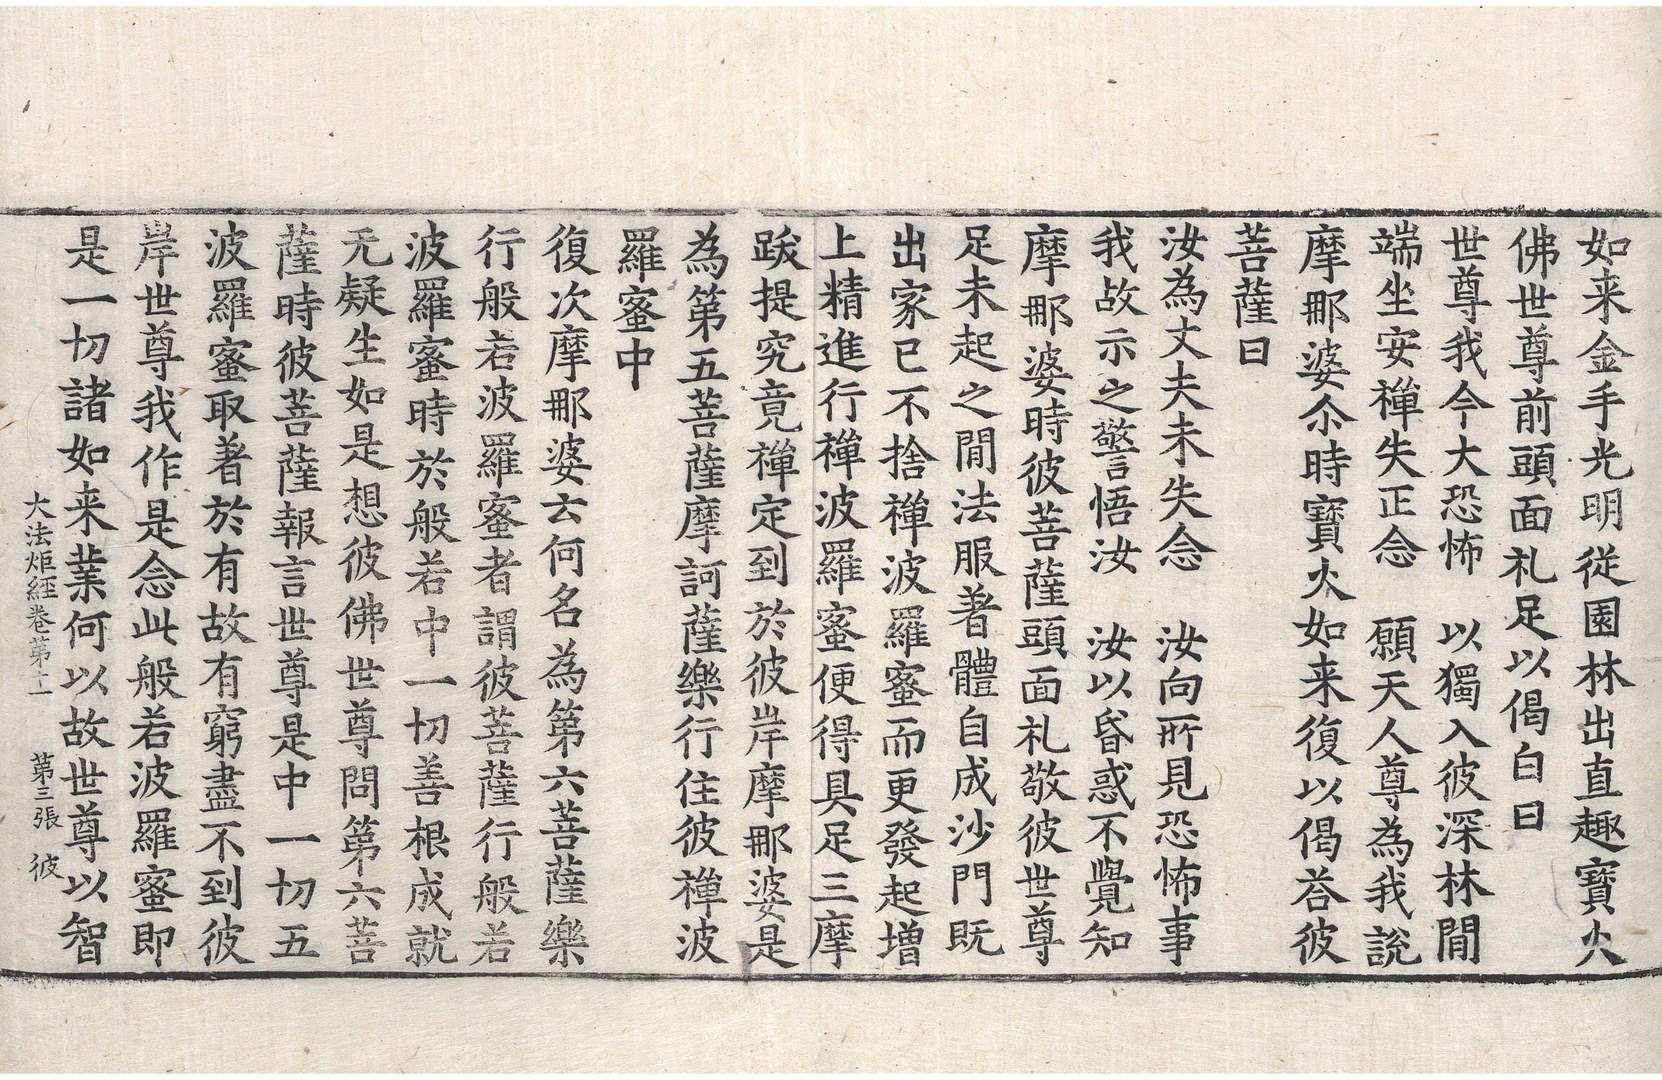 如来金手光明從園林出直趣寶火
佛世尊前頭面礼足以偈白曰
世尊我今大恐怖　以獨入彼深林閒
端坐安禪失正念　願天人尊為我說
摩那婆尒時寶火如来復以偈荅彼
菩薩曰
汝為丈夫未失念　汝向所見恐怖事
我故示之警悟汝　汝以昏惑不覺知
摩那婆時彼菩薩頭面礼敬彼世尊
足未起之閒法服著體自成沙門既
出家已不捨禪波羅蜜而更發起增
上精進行禪波羅蜜便得具足三摩
跋提究竟禪定到於彼岸摩那婆是
為第五菩薩摩訶薩樂行住彼禪波
羅蜜中
復次摩那婆云何名為第六菩薩樂
行般若波羅蜜者謂彼菩薩行般若
波羅蜜時於般若中一切善根成就
无疑生如是想彼佛世尊問第六菩
薩時彼菩薩報言世尊是中一切五
波羅蜜取著於有故有窮盡不到彼
岸世尊我作是念此般若波羅蜜即
是一切諸如来業何以故世尊以智
大法炬経卷第十一　第三張　彼